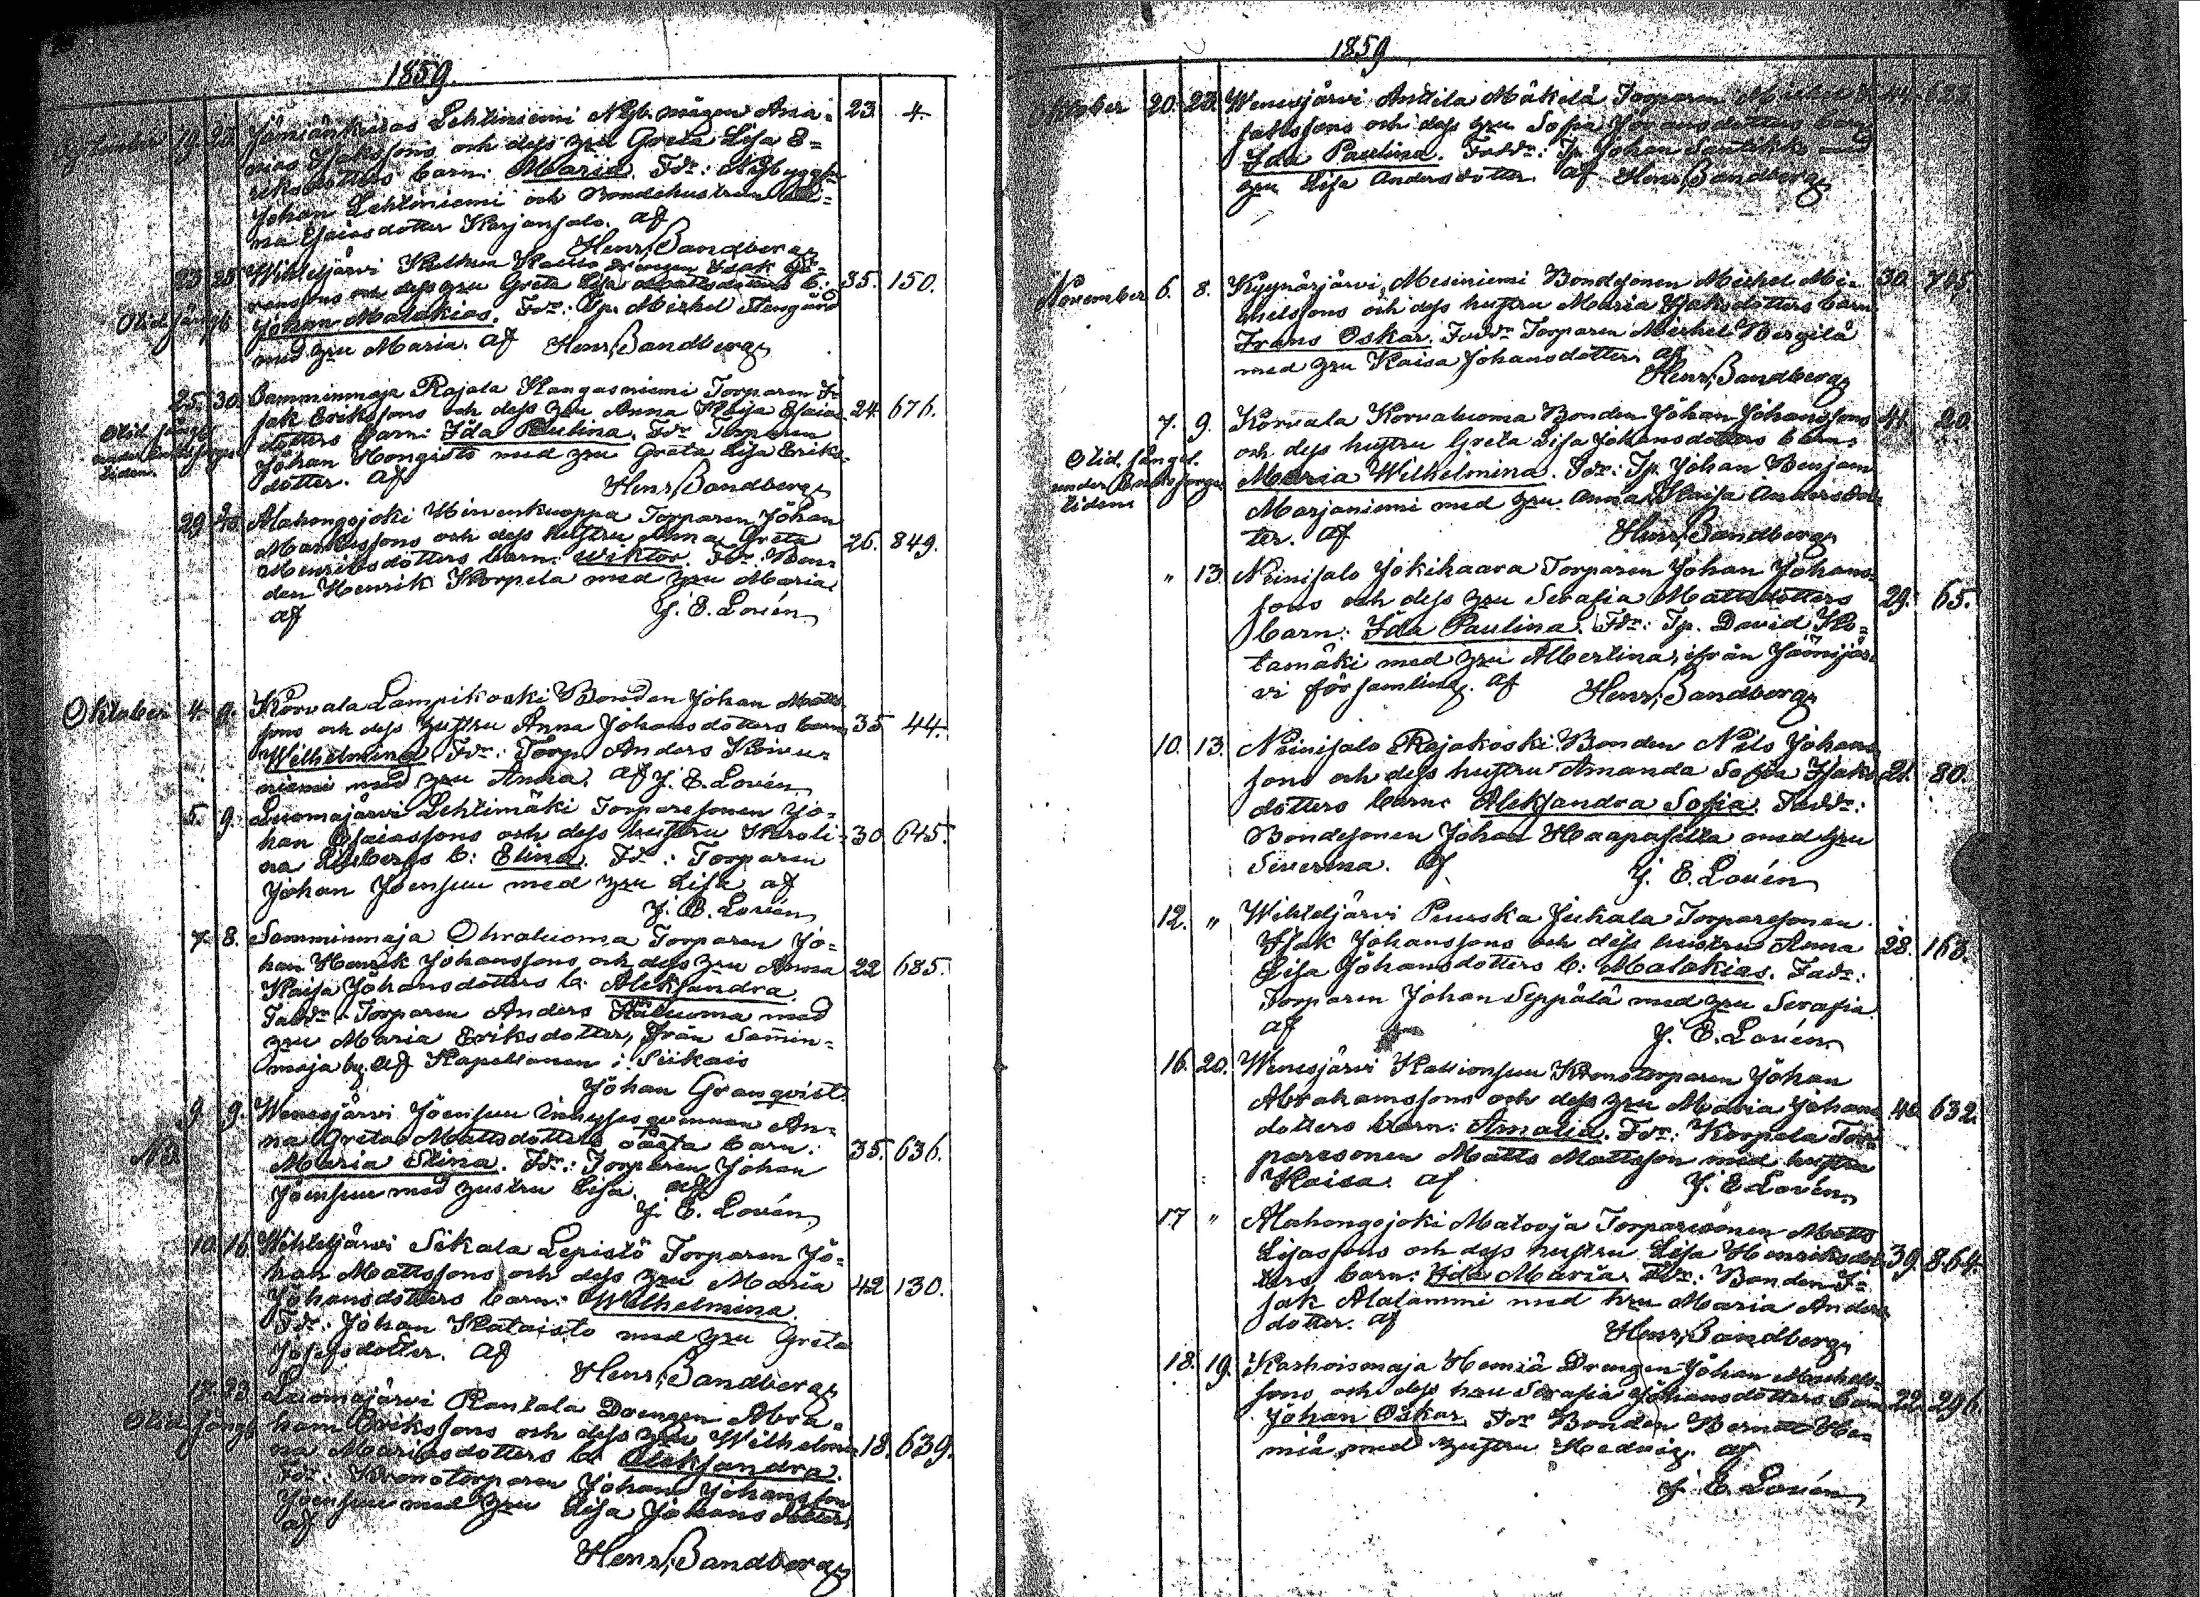 1859.
September 19. 25. Jämiänkeidas Lehtiniemi Nyb. mågen Ana- 23. 4.
nias Isakssons och dess hru Greta Lisa E-
riksdotters barn: Maria. Fdr: Nybygg.
Johan Lehtiniemi och Bondehustrun
na Esaiasdotter Karjansalo. af
Henr. Sandberg
23 25 Wihteljärvi drengen Isak Jo- 35. 150.
hanssons och dess hru Greta Lisa Mattsdotters b:
Johan Malakias. Fdr: Tp. Mickel Stengård
med hru Maria. af Henr. Sandberg
25. 30. Samminmaja Rajala Kangasniemi Torparen I-
sak Erikssons och dess hru Anna Kaisa Esaias- 24 676.
dotters barn: Ida Paulina. Fdr Torparen
Johan Hongisto med hru Greta Lisa Eriks-
dotter. af
Henr. Sandberg
Olid. fängs.
under
tiden.
29 Alahongojoki Hirvenkuoppa Torparen Johan
Markussons och dess hustru Anna Greta 26. 849.
Henriksdotters barn: Wiktor. Fdr: Bon-
den Henrik Korpela med hru Maria
af J. E. Lovén
Oktober 4. 9. Korvala Lampikoski Bonden Johan Matts-
sons och dess hustru Anna Johansdotters barn 35 44.
Wilhelmina. Fdr: Torp. Anders Koivu-
niemi med hru Anna. af J. E. Lovén
5. 9. Luomajärvi Lehtimäki Torparesonen Jo-
han Esaiassons och dess hustru Karoli- 30 645.
na b: Elina. Fdr: Torparen
Johan Joensuu med hru Lisa af
J. E. Lovén
7. 8. Samminmaja Ohraluoma Torparen Jo-
han Henrik Johanssons och dess hru Anna 22 685.
Kaisa Johansdotters b: Aleksandra.
Faddr: Torparen Anders med
hru Maria Eriksdotter, från Sammin-
maja by. af Kapellanen i Siikais
Johan Granqvist.
9. 9. Wenesjärvi Joensuu Inhysesqvinnan An-
na Greta Mattsdotters oäkta barn: 35. 636.
Maria Stina. Fdr: Torparen Johan
Joensuu med hustru Lisa. af
J. E. Lovén
10. 16. Wihteljärvi Sikala Lepistö Torparen Jo-
han Mattssons och dess hru Maria 42 130.
Johansdotters barn: Wilhelmina.
Fdr: Johan Kataisto med hru Greta
Josefsdotter. af
Henr. Sandberg
23. Luomajärvi Rantala Drengen Abra-
ham Erikssons och dess hru Wilhelmi- 18. 639.
na Mariasdotters b: Aleksandra.
Fdr: Kronotorparen Johan Johansson
Joensuu med hru Lisa Johansdotter
af
Henr. Sandberg
1859
Oktober 20. 23. Wenesjärvi Anttila Mäkelä Torparen Mickel 44 623.
Jakssons och dess hru Sofia Johansdotters barn
Ida Paulina. Faddr: Tp. Johan Santikko med
hru Lisa Andersdotter. af Henr. Sandberg
November 6. 8. Kyynärjärvi Mesiniemi Bondesonen Mickel Mi- 30. 745.
chelssons och dess hustru Maria Isaksdotters barn
Frans Oskar. Faddr Torparen Mickel Bergilä
med hru Kaisa Johansdotter. af
Henr. Sandberg
7. 9. Korvala Korvaluoma Bonden Johan Johanssons 41. 20.
och dess hustru Greta Lisa Johansdotters barn:
Maria Wilhelmina. Fdr: Tp. Johan Benjam
Marjaniemi med hru Anna Kaisa Andersdot-
ter. af Henr. Sandberg
Olid. fängsl.
under
tiden
" 13. Niinisalo Jokihaara Torparen Johan Johans-
sons och dess hru Serafia Mattsdotters 29. 65.
barn: Ida Paulina. Fdr: Tp. David Ko-
tamäki med hru Albertina, ifrån Jämijär-
vi församling. af Henr. Sandberg
10. 13. Niinisalo Rajakoski Bonden Nils Johans-
sons och dess hustru Amanda Sofia Isaks- 21. 80.
dotters barn: Aleksandra Sofia. Faddr:
Bondesonen Johan Haapasilta med hru
Severina. af
J. E. Lovén
12. " Wihteljärvi Peurska Jukala Torparesonen
Isak Johanssons och dess hustru Anna 28. 163.
Lisa Johansdotters b: Malakias. Faddr:
Torparen Johan Seppälä med hru Serafia
af
J. E. Lovén
16. 20. Wenesjärvi Kallionsuu Kronotorparen Johan
Abrahamssons och dess hru Maria Johans- 40 632.
dotters barn: Amalia. Fdr: Korpela Tor-
paresonen Matts Mattsson med hustru
Kaisa. af J. E. Lovén
17 " Alahongojoki Matooja Torparesonen Matts
Lisassons och dess hustru Lisa Henriksdot- 39. 864.
ters barn: Ida Maria. Fdr: Bonden I-
sak Alalammi med hru Maria Anders-
dotter. af
Henr. Sandberg
18. 19. Karhoismaja Hemiä Drengen Johan Michels-
sons och dess hru Serafia Johansdotters barn 22. 296.
Johan Oskar. Fdr Bonden Bernatt He-
miä med hustru Hedvig. af
J. E. Lovén